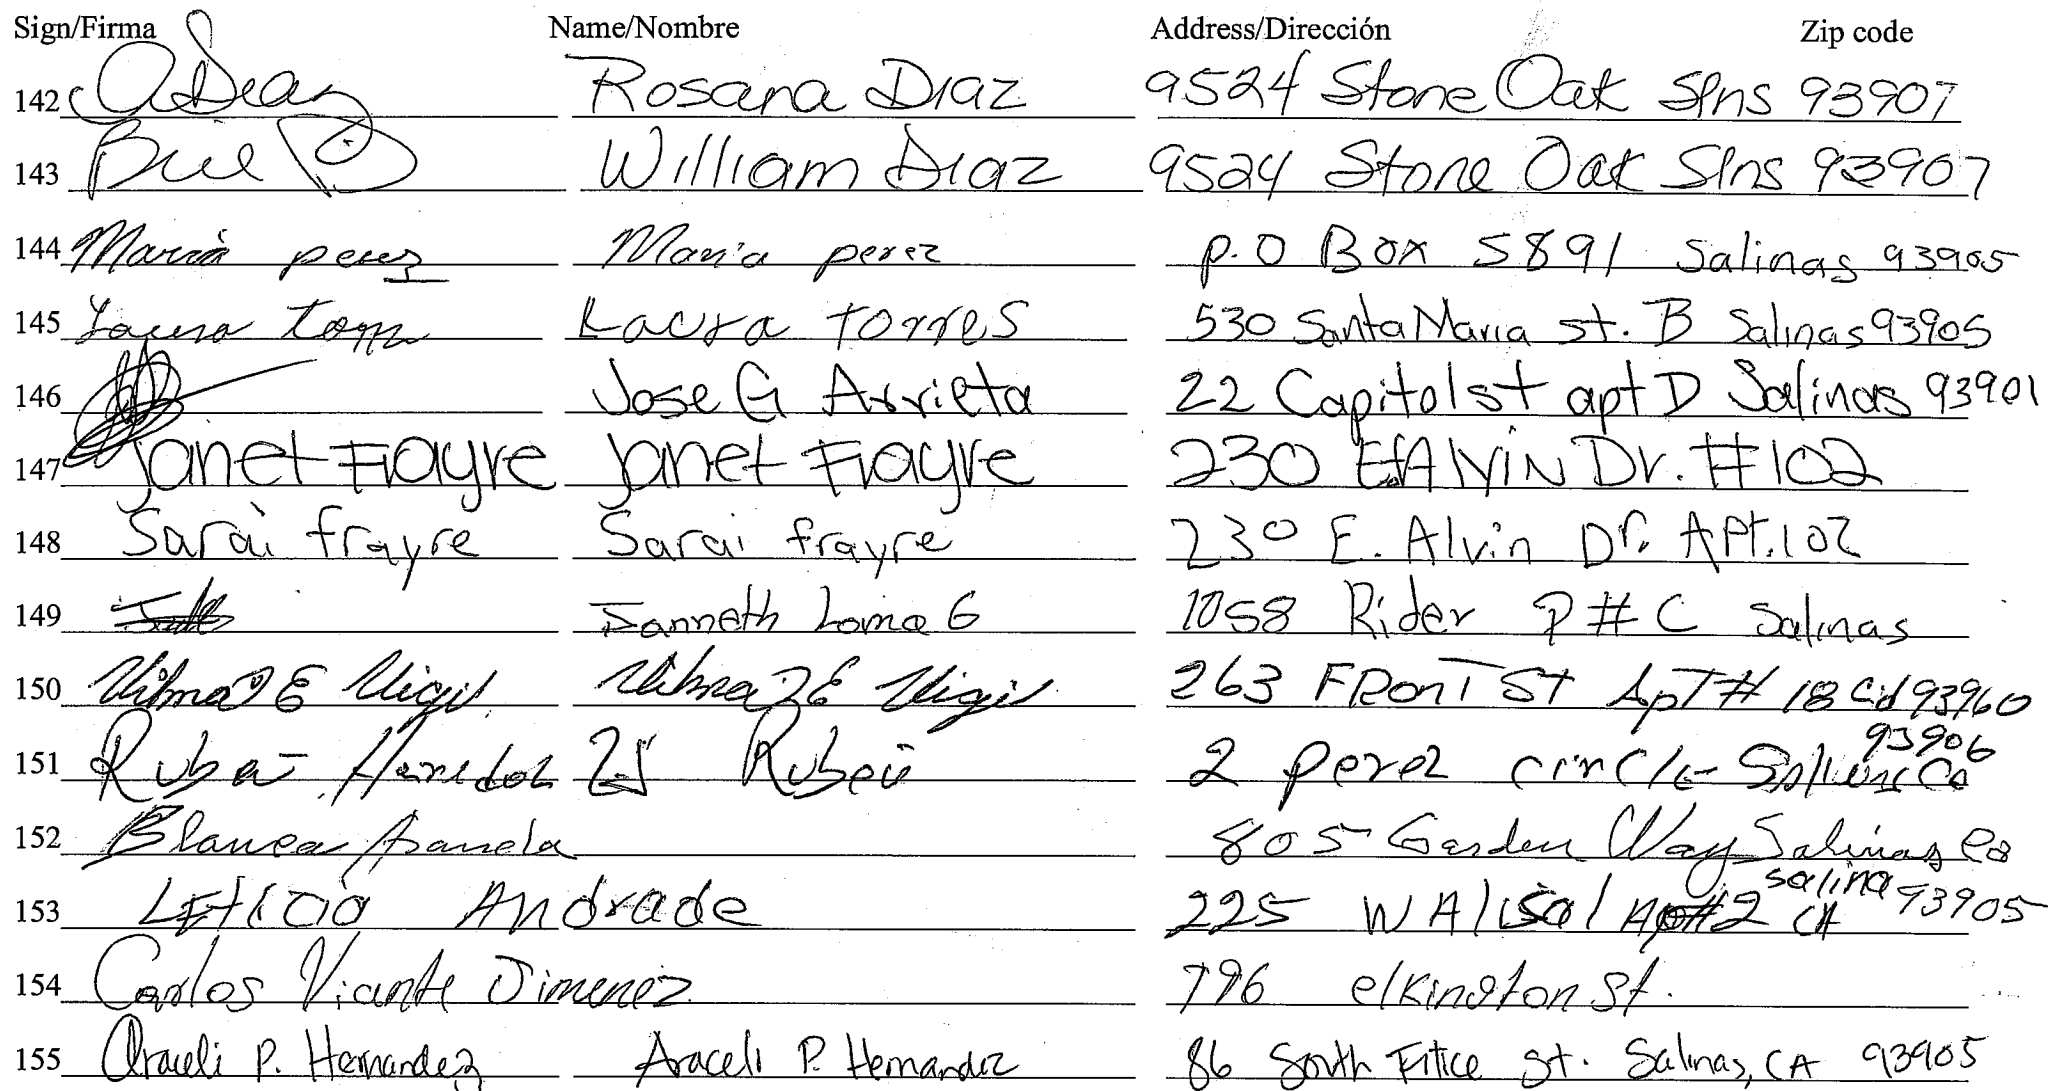 Sign/Firma Name/Nombre Address/Dirección Zip code
142 Rosana Diaz 9524 Stone Oak Slns 93907
143 Bill D William Diaz 9524 Stone Oak Slns 93907
144 Maria perez Maria perez P.O Box 5891 Salinas 93905
145 Laura Torres Laura Torres 530 Santa Maria st. B Salinas 93905
146 Jose G Arrieta 22 Capitol st apt D Salinas 93901
147 Janet Frayre Janet Frayre 230 E. Alvin Dr. #102
148 Sarai frayre Sarai frayre 230 E. Alvin Dr. Apt. 102
149 Janneth Loma G 1058 Rider P # C Salinas
150 Vilma E Vigil Vilma E Vigil 263 FRONT St ApT # 18 93960
151 Ruben Ruben 2 perez circle Salinas Ca 93906
152 Blanca 805 Garden Way Salinas Ca
153 Leticia Andrade 225 W Alisal Apt #2 salina CA 93905
154 Carlos Viante Jimenez 796 elkington st.
155 Araceli P. Hernandez Araceli P. Hernandez 86 South Filice st. Salinas, CA 93905